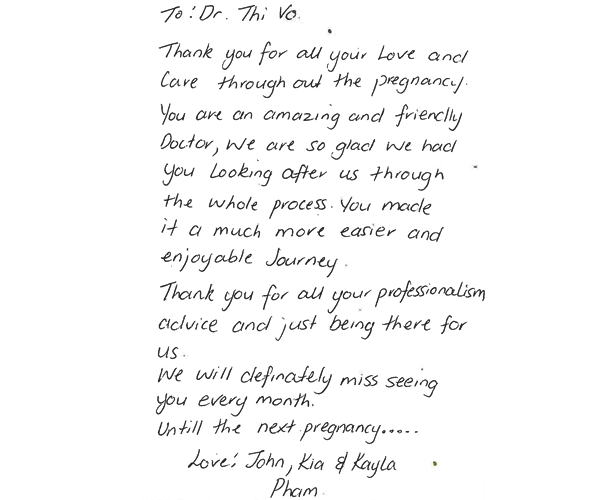 To: Dr. Thi Vo.
Thank you for all your Love and
Care through out the pregnancy.
You are an amazing and friendly
Doctor, We are so glad we had
you Looking after us through
the whole process. You made
it a much more easier and
enjoyable Journey.
Thank you for all your professionalism
advice and just being there for
us.
We will definately miss seeing
you every month.
Untill the next pregnancy.....
Love: John, Kia & Kayla
Pham.